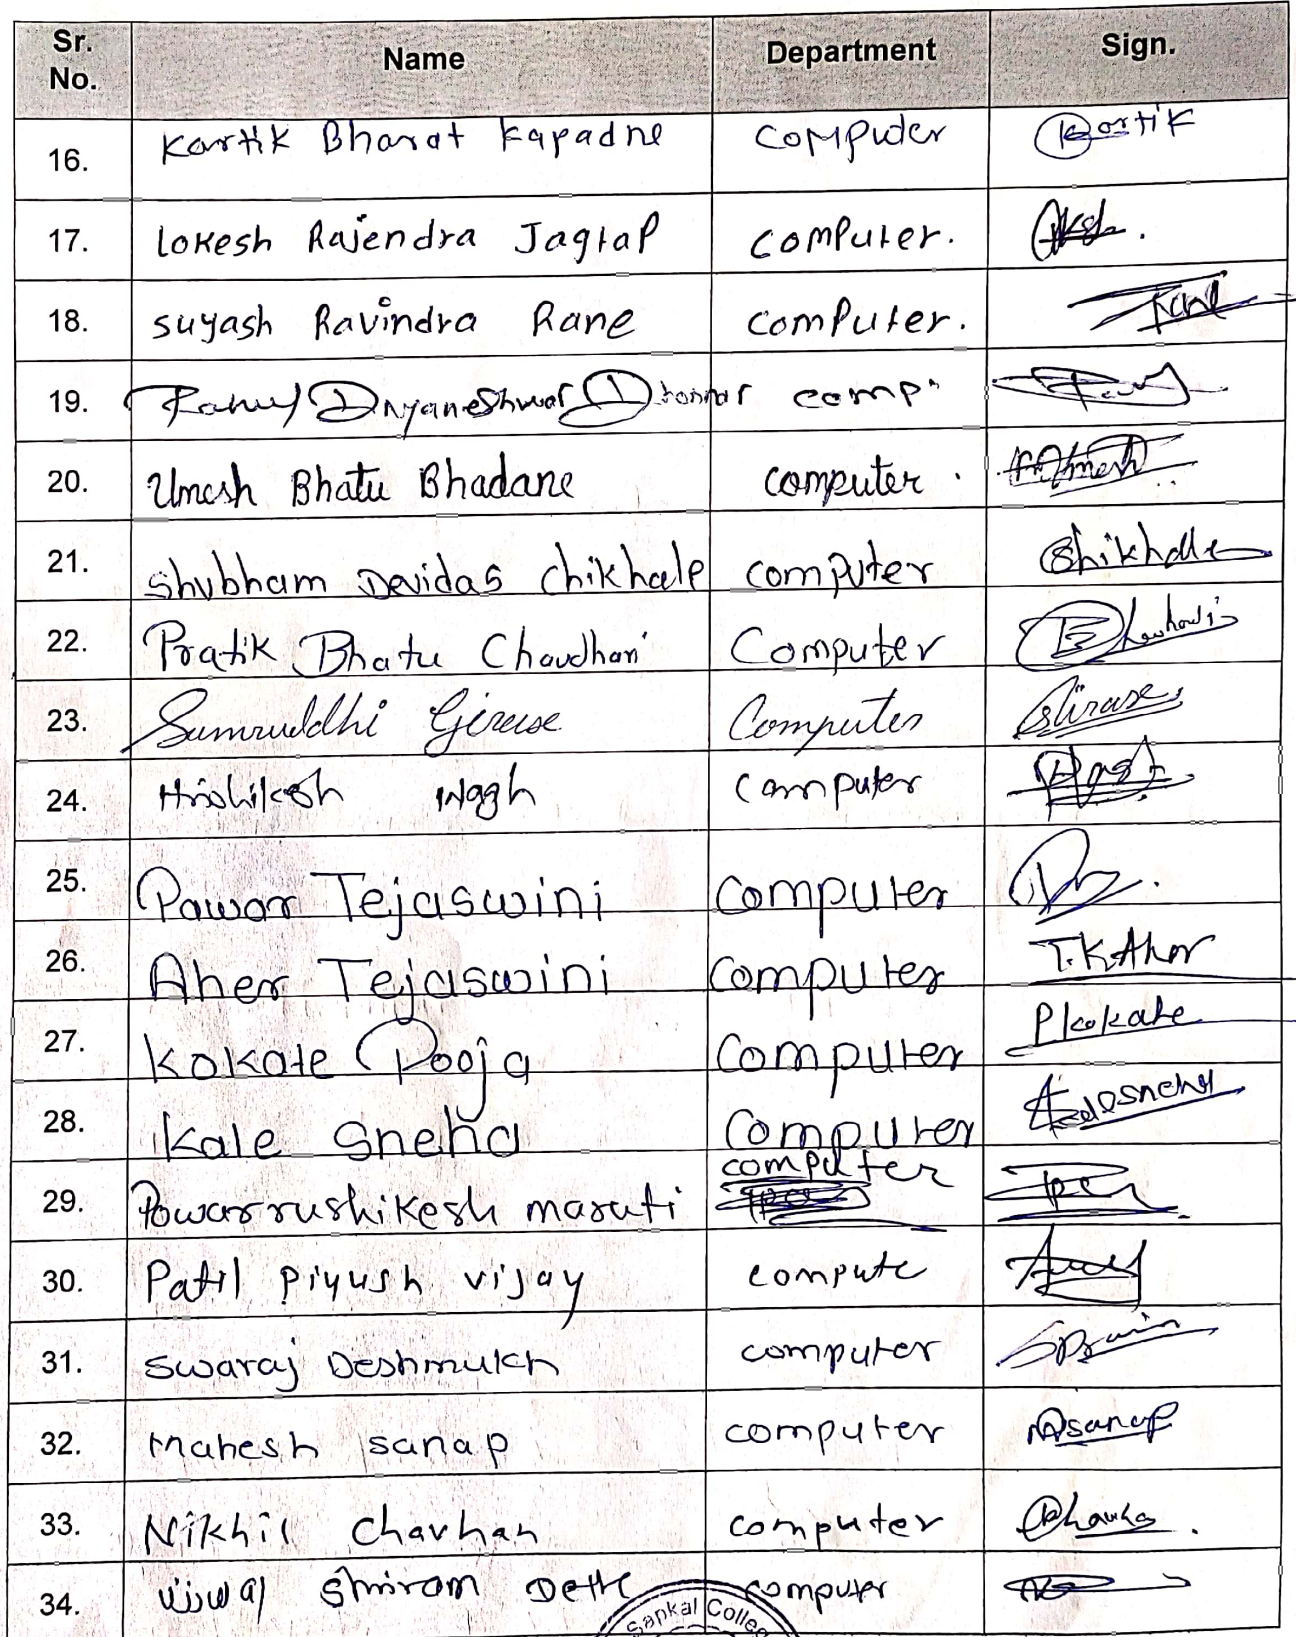 Sr. No. Name Department Sign.
16. Kartik Bharat Kapadne Computer Kartik
17. Lokesh Rajendra Jagtap computer.
18. suyash Ravindra Rane computer. Rane
19. Rahul Dnyaneshwar comp.
20. Umesh Bhatu Bhadane computer. Umesh
21. Shubham Devidas Chikhale computer Chikhale
22. Pratik Bhatu Chaudhari Computer
23. Samruddhi Girase Computer Girase
24. Hrishikesh Wagh Computer
25. Pawar Tejaswini Computer
26. Aher Tejaswini Computer T.K.Aher
27. Kokate Pooja Computer Pkokate
28. Kale Sneha Computer
29. Pawar rushikesh maruti computer
30. Patil Piyush vijay compute
31. Swaraj Deshmukh computer
32. Mahesh sanap computer Msanap
33. Nikhil Chavhan computer
34. Shriram computer
Sapkal College